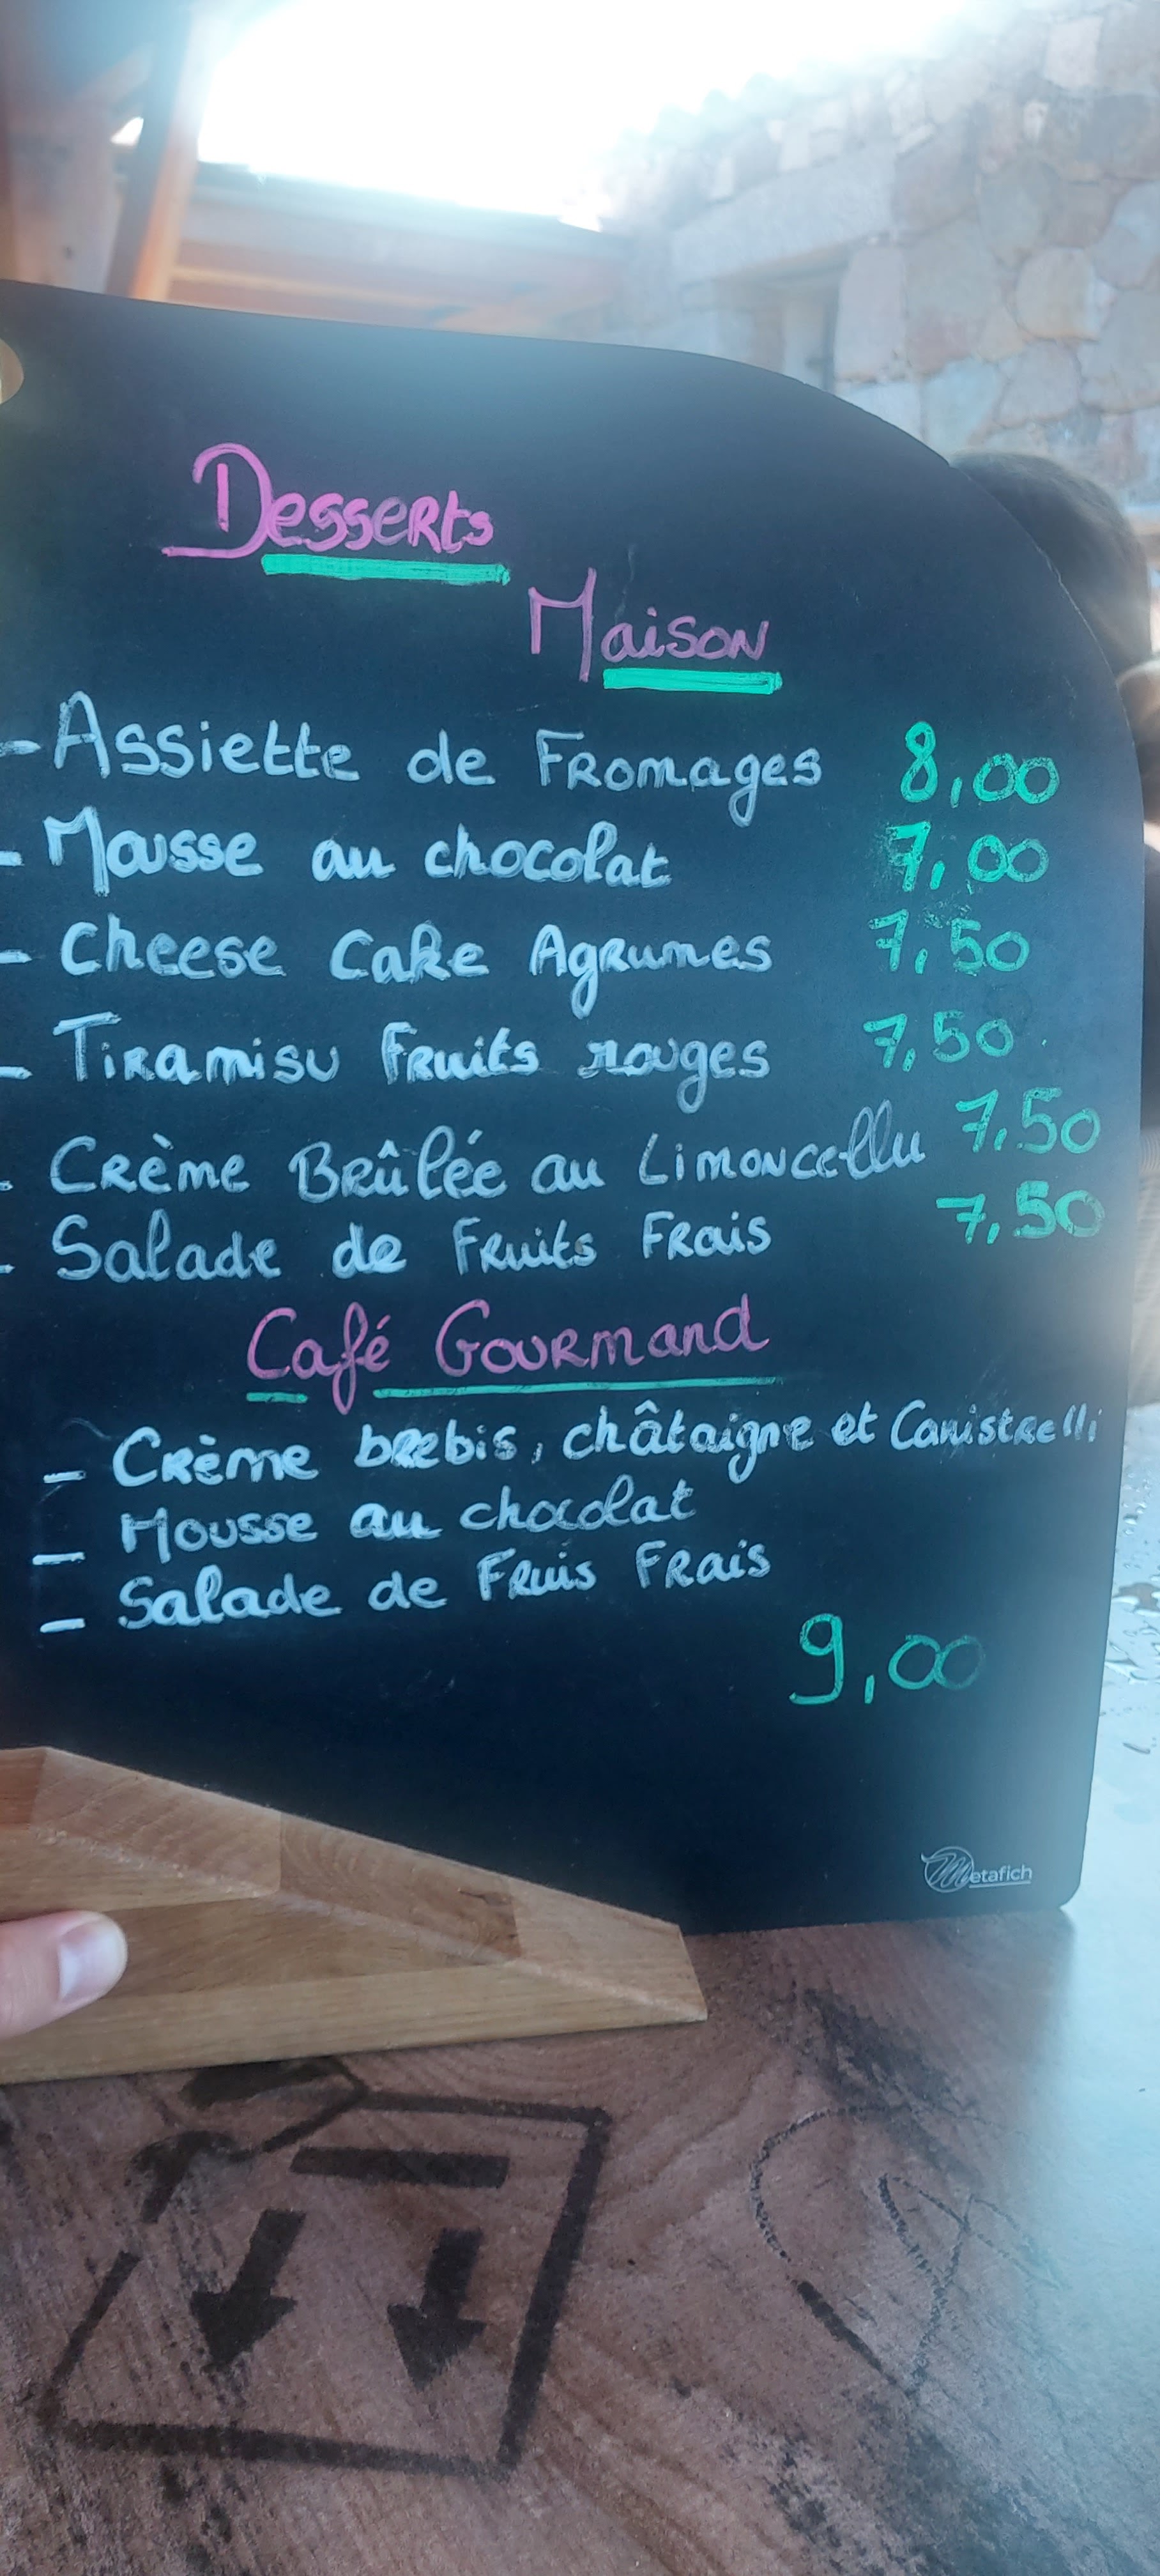 Desserts
Maison
- Assiette de Fromages 8,00
- Mousse au chocolat 7,00
- Cheese Cake Agrumes 7,50
- Tiramisu Fruits rouges 7,50
- Crème Brûlée au Limoncellu 7,50
- Salade de Fruits Frais 7,50
Café Gourmand
- Crème brebis, châtaigne et Canistrelli
- Mousse au chocolat
- Salade de Fruis Frais
9,00
Metafich